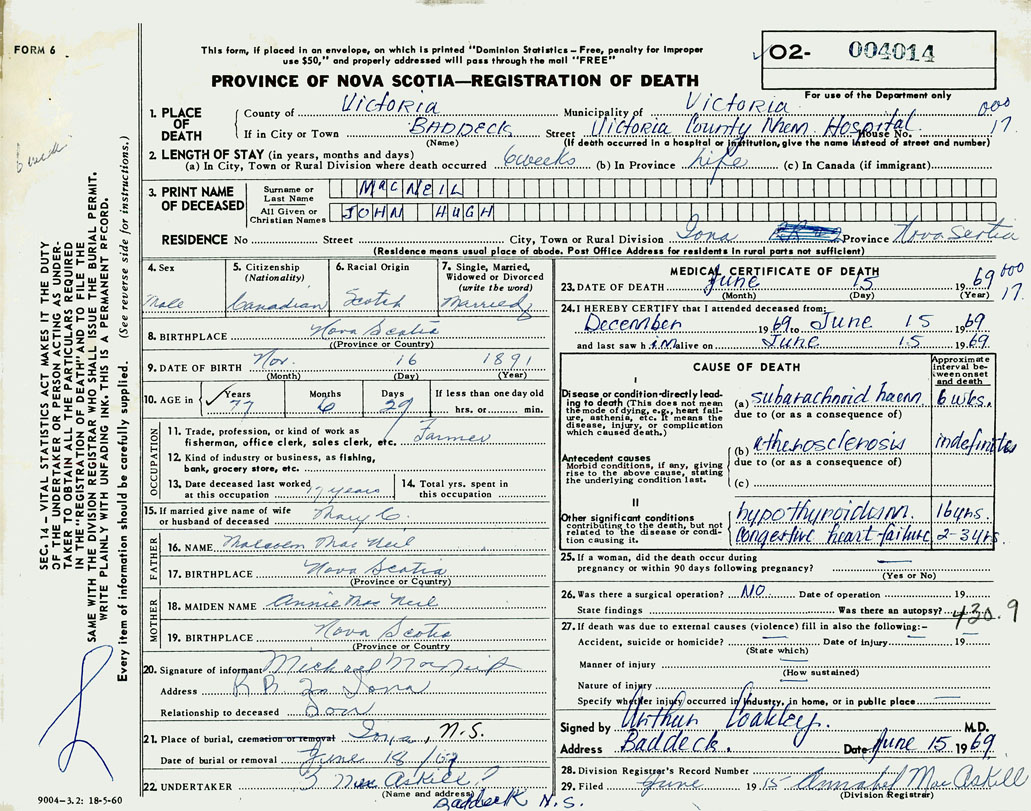 FORM 6
This form, if placed in an envelope, on which is printed "Dominion Statistics – Free, penalty for improper
use $50," and properly addressed will pass through the mail "FREE"
O2- 004014
For use of the Department only
PROVINCE OF NOVA SCOTIA—REGISTRATION OF DEATH
1. PLACE OF DEATH County of Victoria Municipality of Victoria 000
If in City or Town BADDECK Street Victoria County Mem. Hospital House No. 17
(Name) (If death occurred in a hospital or institution, give the name instead of street and number)
2. LENGTH OF STAY (in years, months and days)
(a) In City, Town or Rural Division where death occurred 6 weeks (b) In Province Life (c) In Canada (if immigrant)
3. PRINT NAME OF DECEASED
Surname or Last Name MacNEIL
All Given or Christian Names JOHN HUGH
RESIDENCE No Street City, Town or Rural Division Iona Province Nova Scotia
(Residence means usual place of abode. Post Office Address for residents in rural parts not sufficient)
4. Sex Male
5. Citizenship (Nationality) Canadian
6. Racial Origin Scotch
7. Single, Married, Widowed or Divorced (write the word) Married
8. BIRTHPLACE Nova Scotia
(Province or Country)
9. DATE OF BIRTH Nov. 16 1891
(Month) (Day) (Year)
10. AGE in Years 77 Months 6 Days 29 If less than one day old hrs. or min.
OCCUPATION
11. Trade, profession or kind of work as fisherman, office clerk, sales clerk, etc. Farmer
12. Kind of industry or business, as fishing, bank, grocery store, etc.
13. Date deceased last worked at this occupation 17 years
14. Total yrs. spent in this occupation
15. If married give name of wife or husband of deceased Mary C.
FATHER
16. NAME Malcolm Mac Neil
17. BIRTHPLACE Nova Scotia
(Province or Country)
MOTHER
18. MAIDEN NAME Annie Mac Neil
19. BIRTHPLACE Nova Scotia
(Province or Country)
20. Signature of informant Michael
Address R R Iona
Relationship to deceased Son
21. Place of burial, cremation or removal Iona, N.S.
Date of burial or removal June 18
22. UNDERTAKER
(Name and address)
Baddeck N.S.
9004-3.2: 18-5-60
MEDICAL CERTIFICATE OF DEATH 000
23. DATE OF DEATH June 15 1969 17
(Month) (Day) (Year)
24. I HEREBY CERTIFY that I attended deceased from:
December 1969 to June 15 1969
and last saw h im alive on June 15 1969
CAUSE OF DEATH
Approximate interval between onset and death
I
Disease or condition directly leading to death (This does not mean the mode of dying, e.g., heart failure, asthenia, etc. It means the disease, injury, or complication which caused death.)
(a) subarachnoid haem 6 wks.
due to (or as a consequence of)
Antecedent causes
Morbid conditions, if any, giving rise to the above cause, stating the underlying condition last.
(b) atherosclerosis indefinite
due to (or as a consequence of)
(c)
II
Other significant conditions contributing to the death, but not related to the disease or condition causing it.
hypothyroidism. 16 yrs.
congestive heart failure 2-3 yrs.
25. If a woman, did the death occur during pregnancy or within 90 days following pregnancy?
(Yes or No)
26. Was there a surgical operation? NO Date of operation 19
State findings Was there an autopsy? 430.9
27. If death was due to external causes (violence) fill in also the following:–
Accident, suicide or homicide? Date of injury 19
(State which)
Manner of injury
(How sustained)
Nature of injury
Specify whether injury occurred in industry, in home, or in public place
Signed by Arthur Coakley. M.D.
Address Baddeck. Date June 15 1969
28. Division Registrar's Record Number
29. Filed June 1915 Annabel MacAskill
(Division Registrar)
SEC. 14 – VITAL STATISTICS ACT MAKES IT THE DUTY
OF THE UNDERTAKER OR PERSON ACTING AS UNDER-
TAKER TO OBTAIN ALL THE PARTICULARS REQUIRED
IN THE "REGISTRATION OF DEATH" AND TO FILE THE
SAME WITH THE DIVISION REGISTRAR WHO SHALL ISSUE THE BURIAL PERMIT.
WRITE PLAINLY WITH UNFADING INK. THIS IS A PERMANENT RECORD.
Every item of information should be carefully supplied. (See reverse side for instructions.)